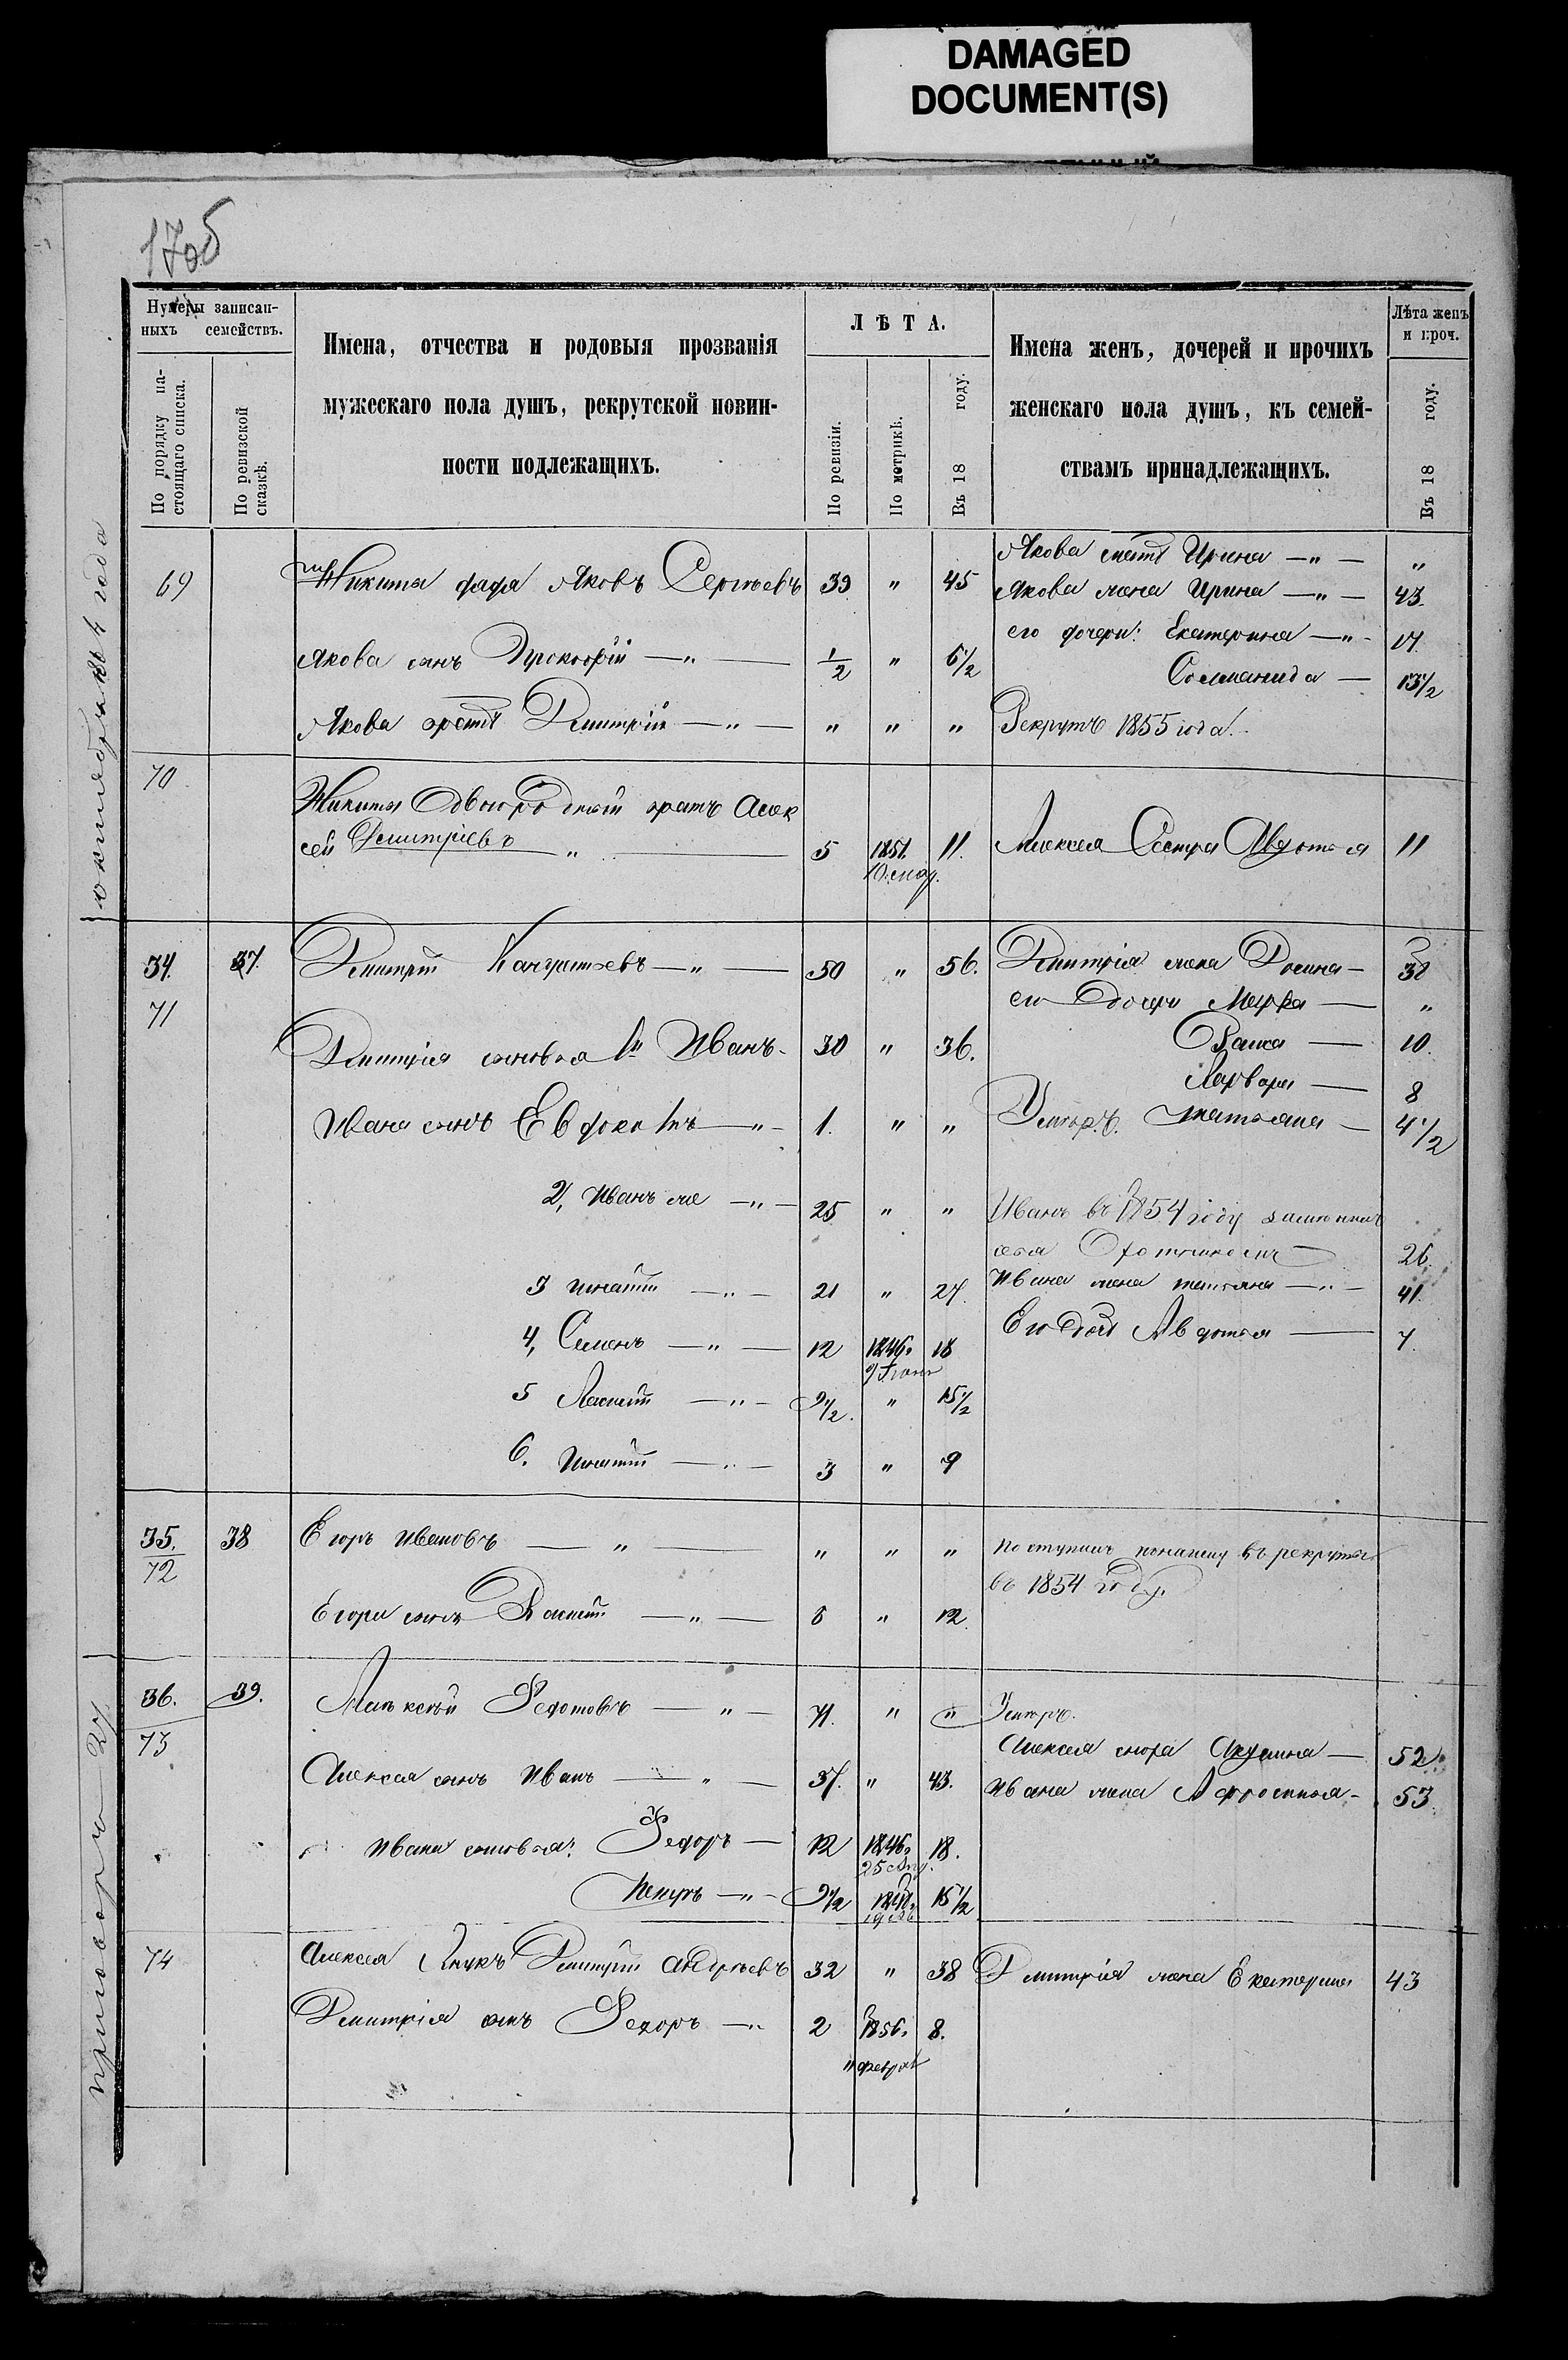 DAMAGED
DOCUMENT(S)
170б
Нумеры записан-
ныхъ семействъ.
По порядку на-
стоящаго списка.
По ревизской
сказкѣ.
Имена, отчества и родовыя прозванія
мужескаго пола душъ, рекрутской повин-
ности подлежащихъ.
ЛѢТА.
По ревизіи.
По метрикѣ.
Въ 18 году.
Имена женъ, дочерей и прочихъ
женскаго пола душъ, къ семей-
ствамъ принадлежащихъ.
Лѣта женъ
и проч.
Въ 18 году.
Якова мать Ирина — " — "
69 Никиты дядя Яковъ Сергѣевъ 39 " 45 Якова жена Ирина — " — 43.
его дочери: Екатерина — " - 17.
Якова сынъ Прокофій — " — 1/2 " 6 1/2
Соломанида — 13 1/2
Якова братъ Дмитрій — " — " " " Рекрутъ 1855 года.
70 Никиты Двоюродный братъ Алек
сей Дмитріевъ " 5 1851. 11. Алексея Сестра Авдотья 11
10 мар.
34. 37. Дмитрій Кондратьевъ — " — 50 " 56. Дмитрія жена — 38
71 его дочери Марфа — "
Дмитрія сыновья 1й Иванъ - 30 " 36. — 10.
Варвара — 8
Ивана сынъ Евдокимъ — " - 1. " " Умеръ. Татьяна — 4 1/2
2, Иванъ же — " - 25 " " Иванъ въ 1854 году
себя Охотникомъ — 26.
3 Игнатій — " - 21 " 27. Ивана жена Татьяна — " — 41.
Его дочь Авдотья — 7.
4, Семенъ — " — 12 1846. 18
5 — " - 9 1/2. " 15 1/2
6. Игнатій — " - 3 " 9
35. 38 Егоръ Ивановъ — " — " " " Поступилъ въ рекруты
72 въ 1854 году.
Егора сынъ — " — 6 " 12.
36. 39. Алексѣй Федотовъ — " - 71. " " Умеръ.
73 Алексея сноха Акулина — 52.
Алексея сынъ Иванъ — " — 37. " 43. Ивана жена Афросинья - 53.
Ивана сыновья: Федоръ — 12 1846. 18.
Петръ — " - 9 1/2 15 1/2
74 Алексея Внукъ Дмитрій Андреевъ 32 " 38 Дмитрія жена Екатерина 43
Дмитрія сынъ Федоръ — " 2 1856. 8.
" февраля
октября 1864 года
приговоръ 27